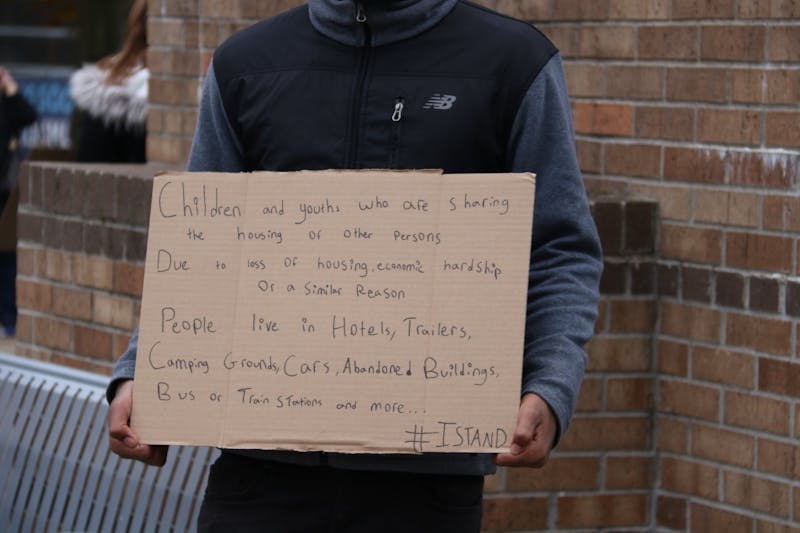 Children and youths who are sharing
the housing of other persons
Due to loss of housing, economic hardship
Or a similar Reason
People live in Hotels, Trailers,
Camping Grounds, Cars, Abandoned Buildings,
Bus or Train stations and more...
#ISTAND